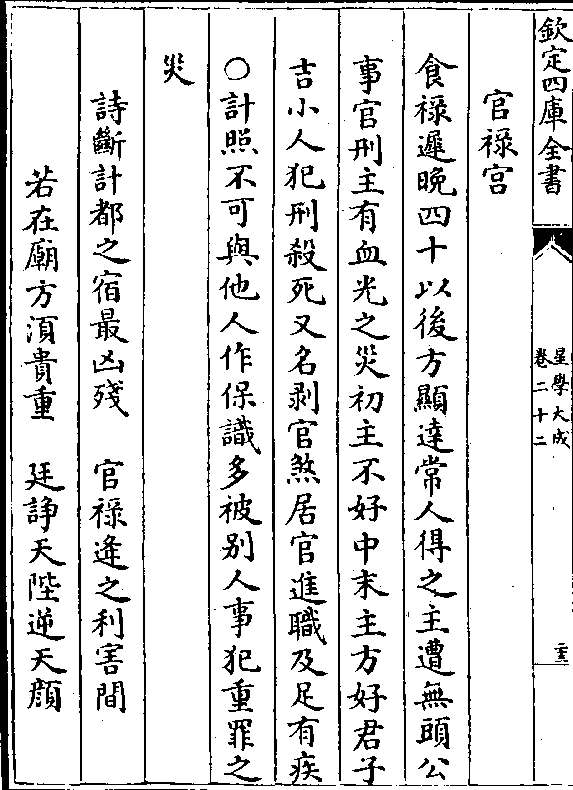 欽定四庫全書
星學大成
卷二十二
官禄宫
食祿遲晚四十以後方顯達常人得之主遭無頭公
事官刑主有血光之災初主不好中末主方好君子
吉小人犯刑殺死又名剥官煞居官進職及足有疾
○計照不可與他人作保識多被别人事犯重罪之
災
詩斷計都之宿最凶殘　官禄逄之利害間
若在廟方湏貴重　廷諍天陛逆天顔